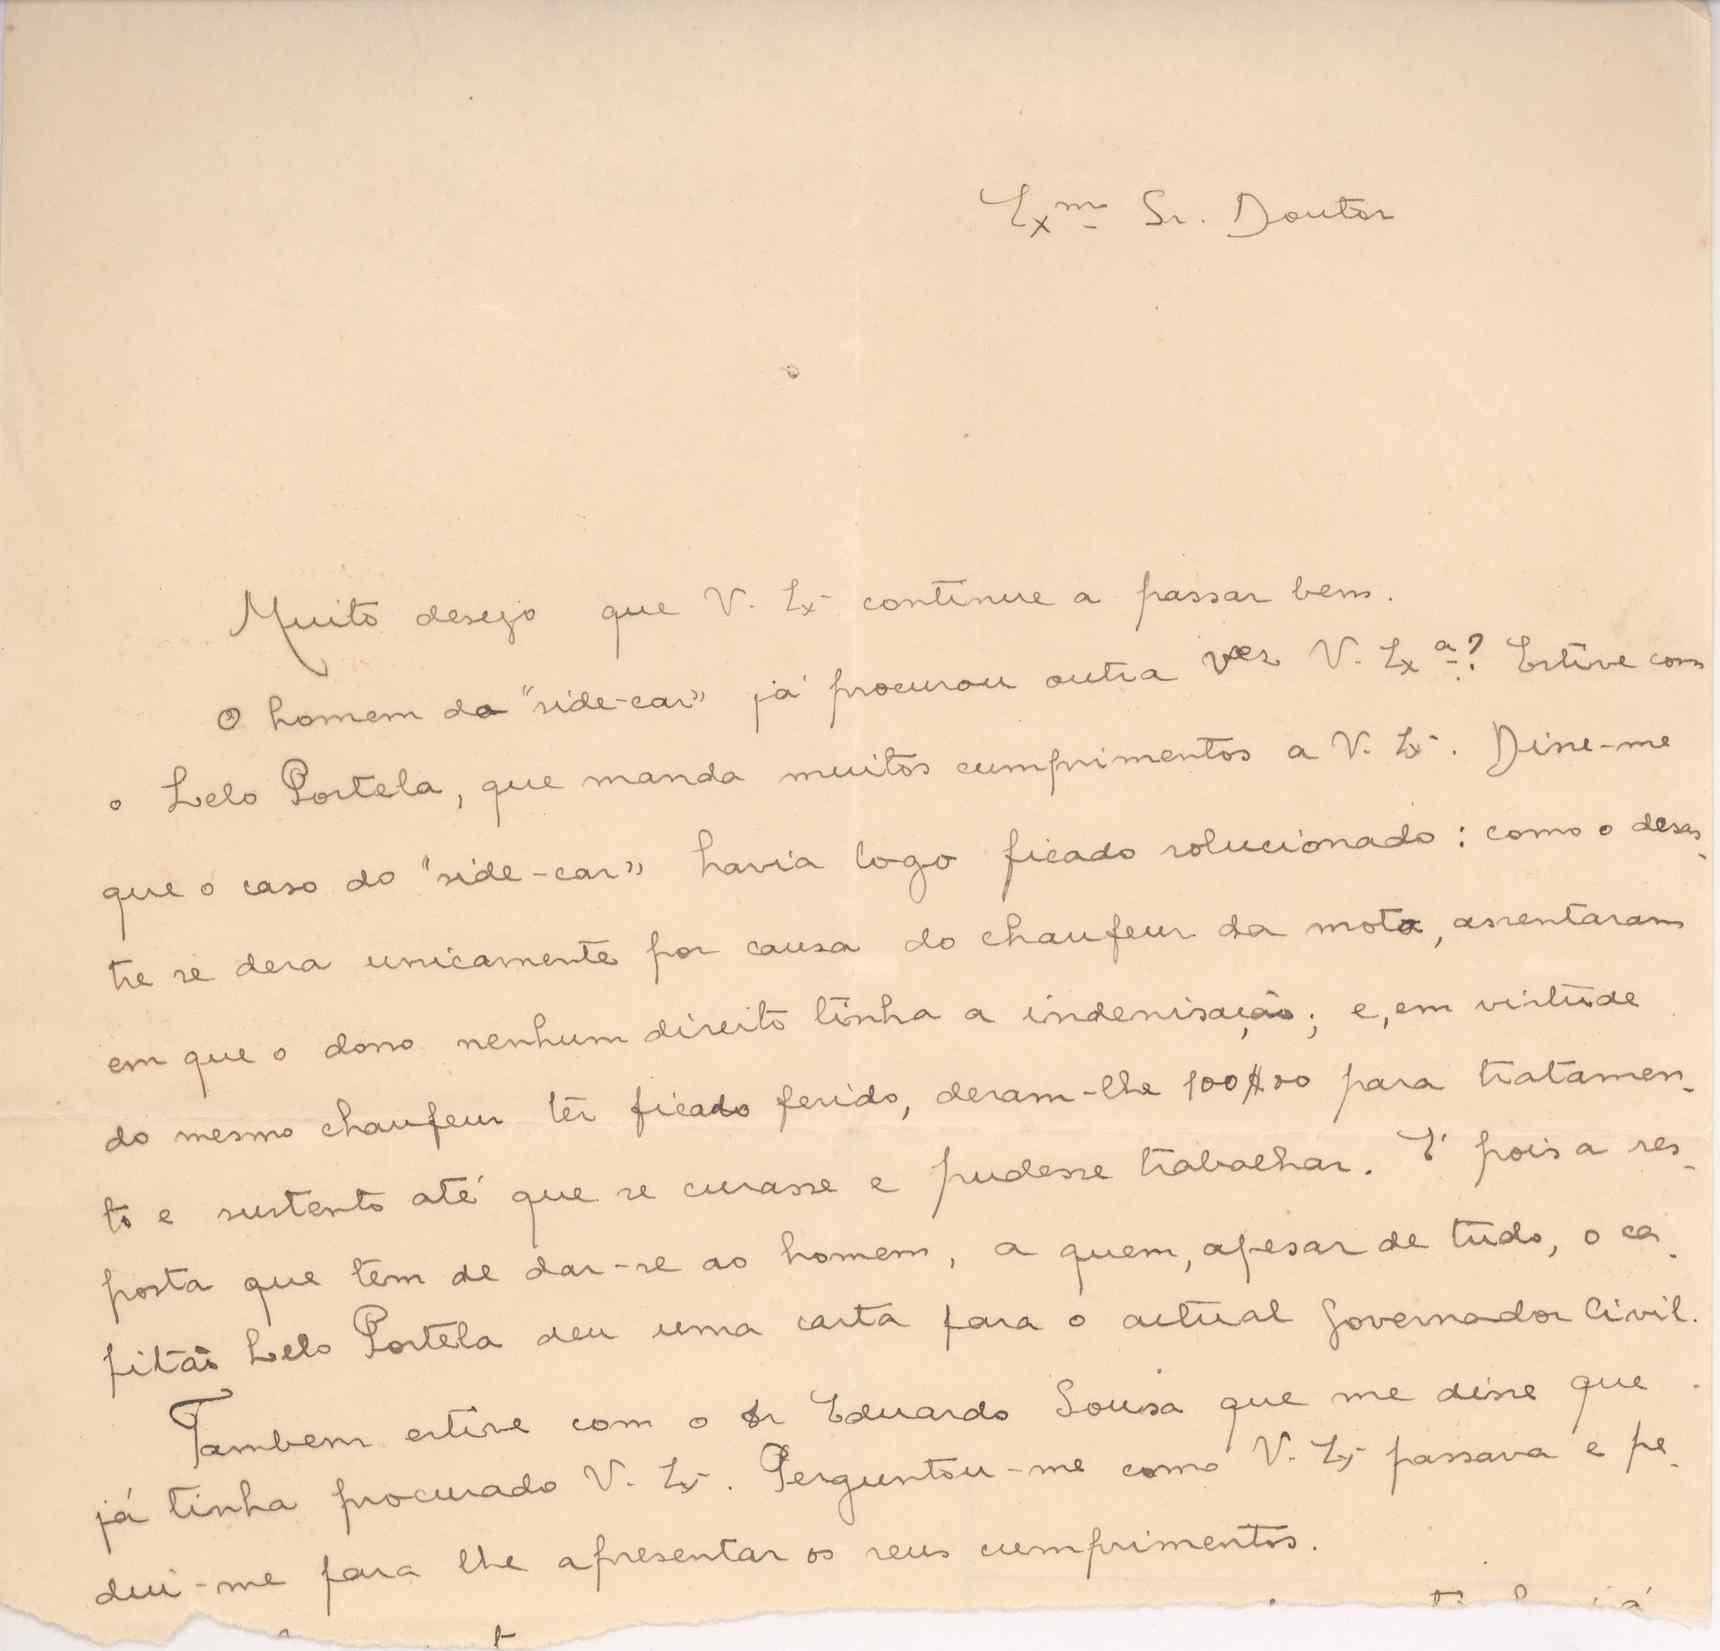 Exmo Sr. Doutor
Muito desejo que V. Ex. continue a passar bem.
O homem do "side-car" já procurou outra vez V. Exa? Estive com
o Lelo Portela, que manda muitos cumprimentos a V. Ex. Disse-me
que o caso do "side-car" havia logo ficado solucionado: como o desas-
tre se dera unicamente por causa do chaufeur da moto, assentaram
em que o dono nenhum direito tinha a indenisação; e, em virtude
do mesmo chaufeur ter ficado ferido, deram-lhe 100$00 para tratamen-
to e sustento até que se curasse e pudesse trabalhar. É pois a res-
posta que tem de dar-se ao homem, a quem, apesar de tudo, o ca-
pitão Lelo Portela deu uma carta para o actual Governador Civil.
Tambem estive com o Sr Eduardo Sousa que me disse que
já tinha procurado V. Ex. Perguntou-me como V. Ex. passava e pe-
diu-me para lhe apresentar os seus cumprimentos.